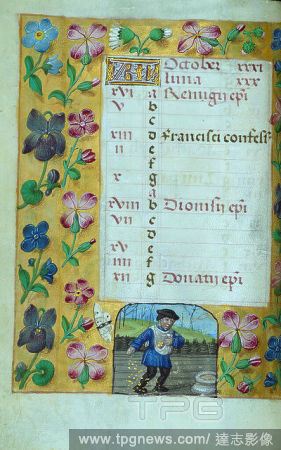 KL October xxxi
luna xxx
xvi a Remigij epi
v b
c
xiii d Francisci confess
ii e
f
x g
a
xviii b Dionisij epi
vii c
d
xv e
iiii f
xii g Donatij epi
TPG
www.tpgnews.com/ 達志影像